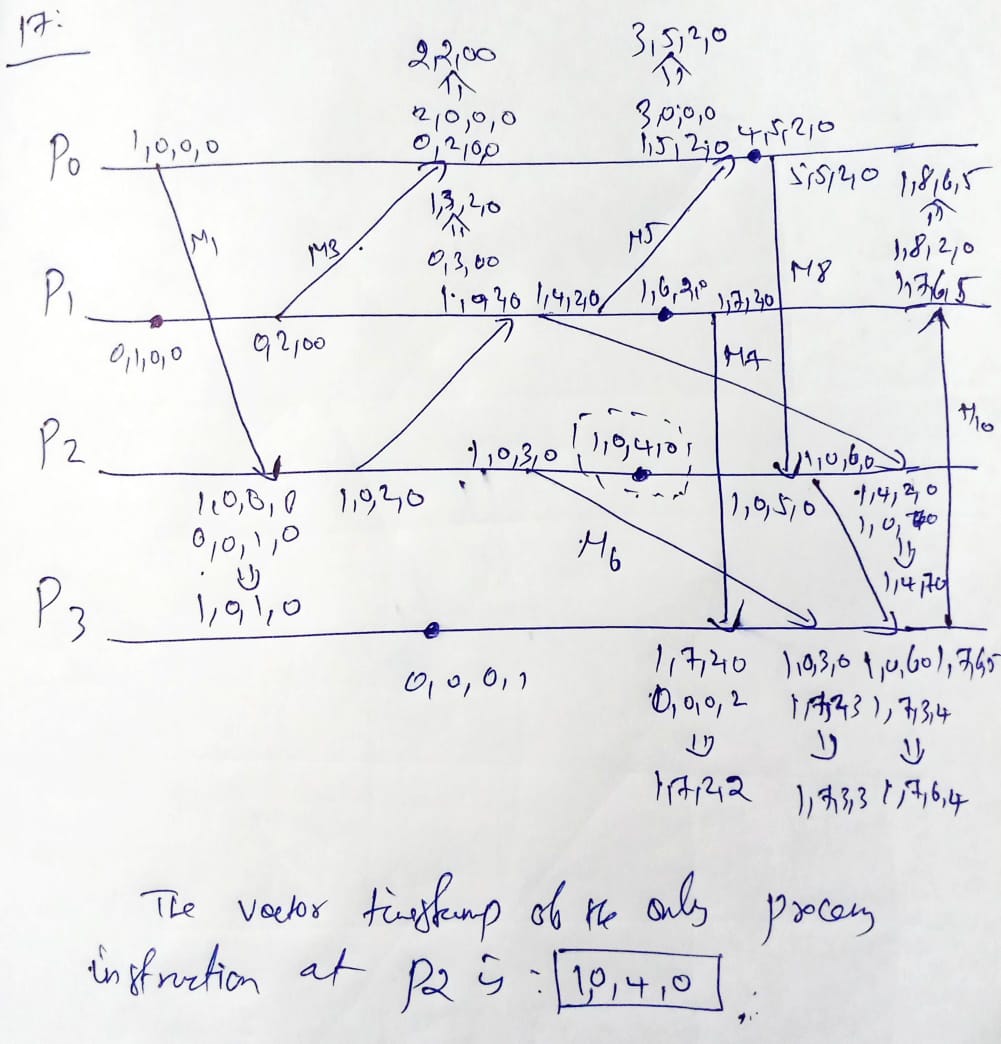 17:
2,2,00
2,0,0,0
0,2,0,0
3,5,2,0
3,0,0,0
1,5,2,0
4,5,2,0
P0
1,0,0,0
5,5,2,0
1,8,6,5
1,8,2,0
1,7,6,5
M1
M3
1,3,2,0
0,3,00
M5
M8
P1
1,4,20
1,7,20
0,1,0,0
0,2,00
M7
M10
P2
1,0,3,0
1,0,4,0
1,0,6,0
1,0,2,0
1,0,5,0
1,4,2,0
0,0,1,0
1,0,1,0
1,4,70
M6
P3
0,0,0,1
1,7,20
0,0,0,2
1,7,2,2
1,0,3,0
1,7,3,3
1,0,60
1,7,3,4
1,7,6,4
1,7,6,5
The vector timestamp of the only process
instruction at P2 is : 1,0,4,0